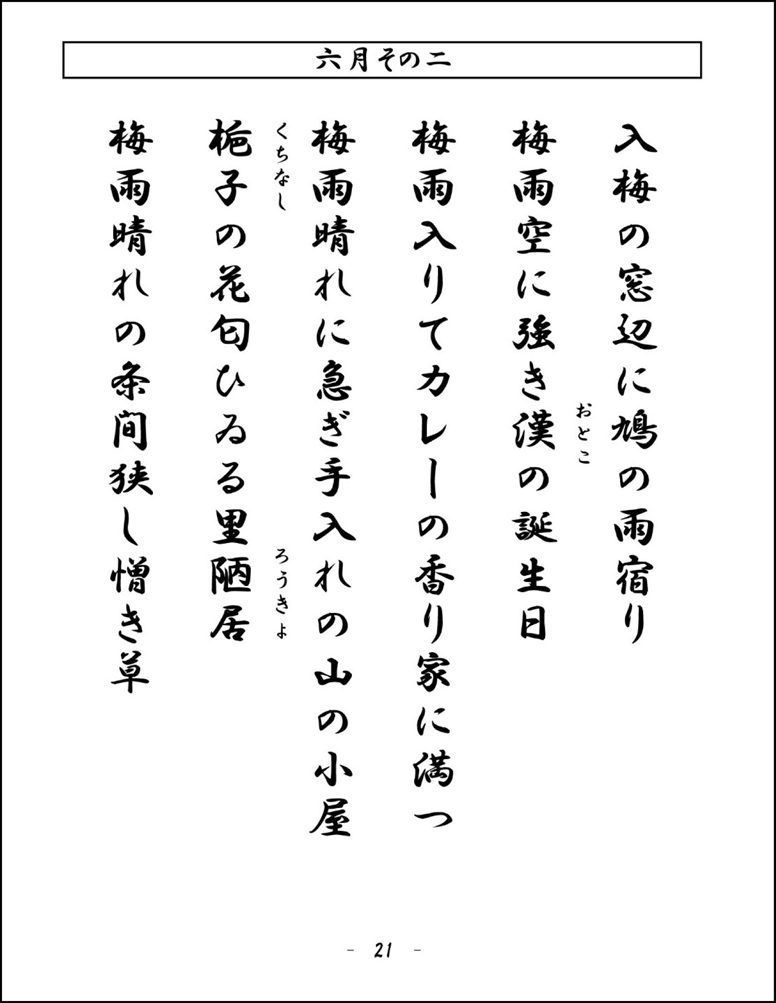 六月その二
入梅の窓辺に鳩の雨宿り
梅雨空に強き漢の誕生日
おとこ
梅雨入りてカレーの香り家に満つ
梅雨晴れに急ぎ手入れの山の小屋
梔子の花匂ひゐる里陋居
くちなし
ろうきょ
梅雨晴れの条間狭し憎き草
- 21 -